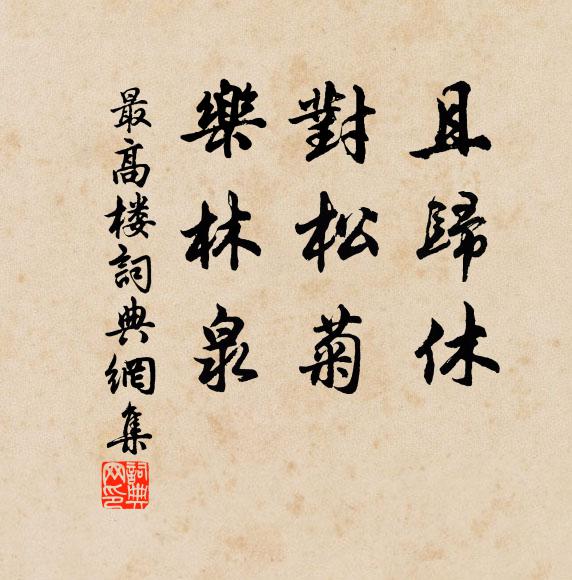 且歸休
對松菊
樂林泉
最高楼詞典網集
詞典网印